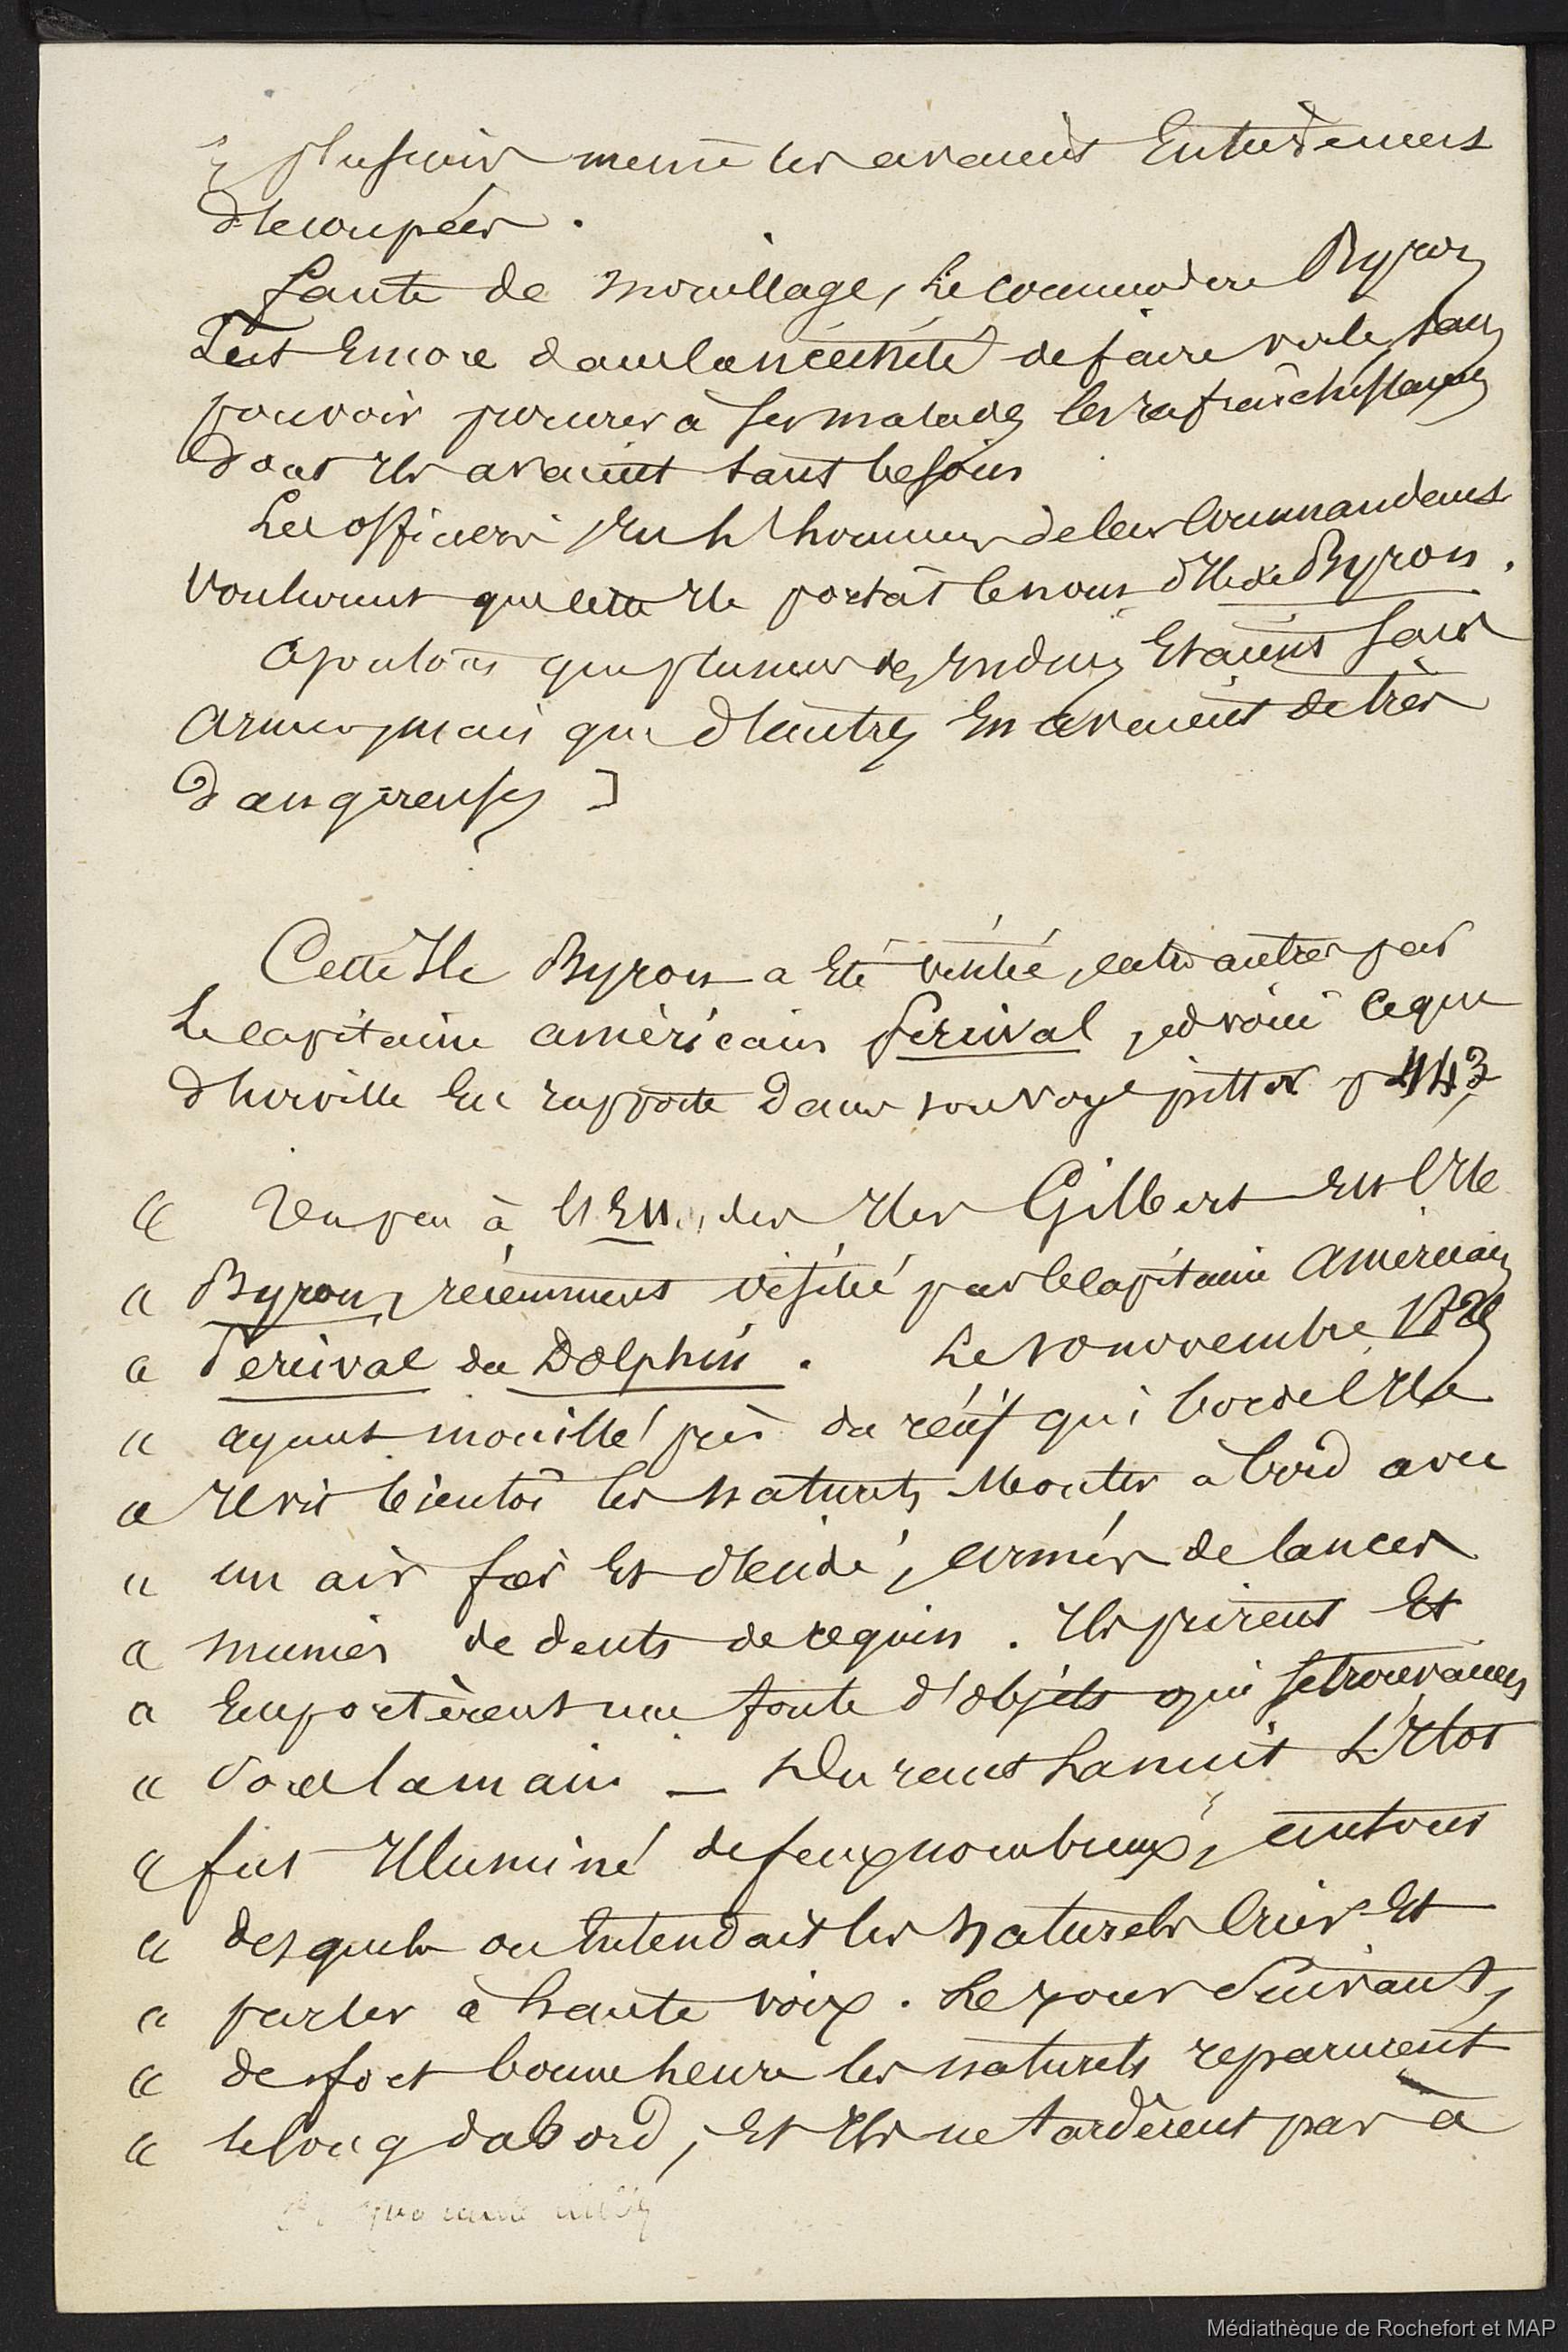 & plusieurs meme les avaient Entièrement
découpées.
faute de mouillage, Le commodore Byron
fut Encore dans la nécessité de faire voile sans
pouvoir procurer à ses malades les rafraichissements
dont Ils avaient tant besoin
Les officiers, En l'honneur de leur Commandant
Voulurent que cette Ile portât le nom d'Ile de Byron.
ajoutons que plusieurs des Indiens Etaient sans
armes, mais que d'autres En avaient de très
dangereuses ]
Cette Ile Byron a Eté visitée, entre autres par
Le capitaine américain Percival, et voici ce que
d'Urville En rapporte dans son voye pittor p 443
« Un peu à l'Est des Iles Gilbert Est l'Ile
« Byron, récemment visitée par le capitaine américain
« Percival du Dolphin. Le 10 novembre
« ayant mouillé près du récif qui borde l'Ile
« Il vit bientôt les naturels Monter à bord avec
« un air fier Et décidé, armés de lances
« munies de dents de requin. Ils prirent Et
« Emportèrent une foule d'objets qui se trouvaient
« sous la main — Durant La nuit L'Ilot
« fut Illuminé de feux nombreux, autour
« desquels on Entendait les naturels Crier Et
« parler à haute voix. Le jour Suivant,
« de fort bonne heure les naturels reparurent
« le long du bord, Et Ils ne tardèrent pas à
Médiathèque de Rochefort et MAP